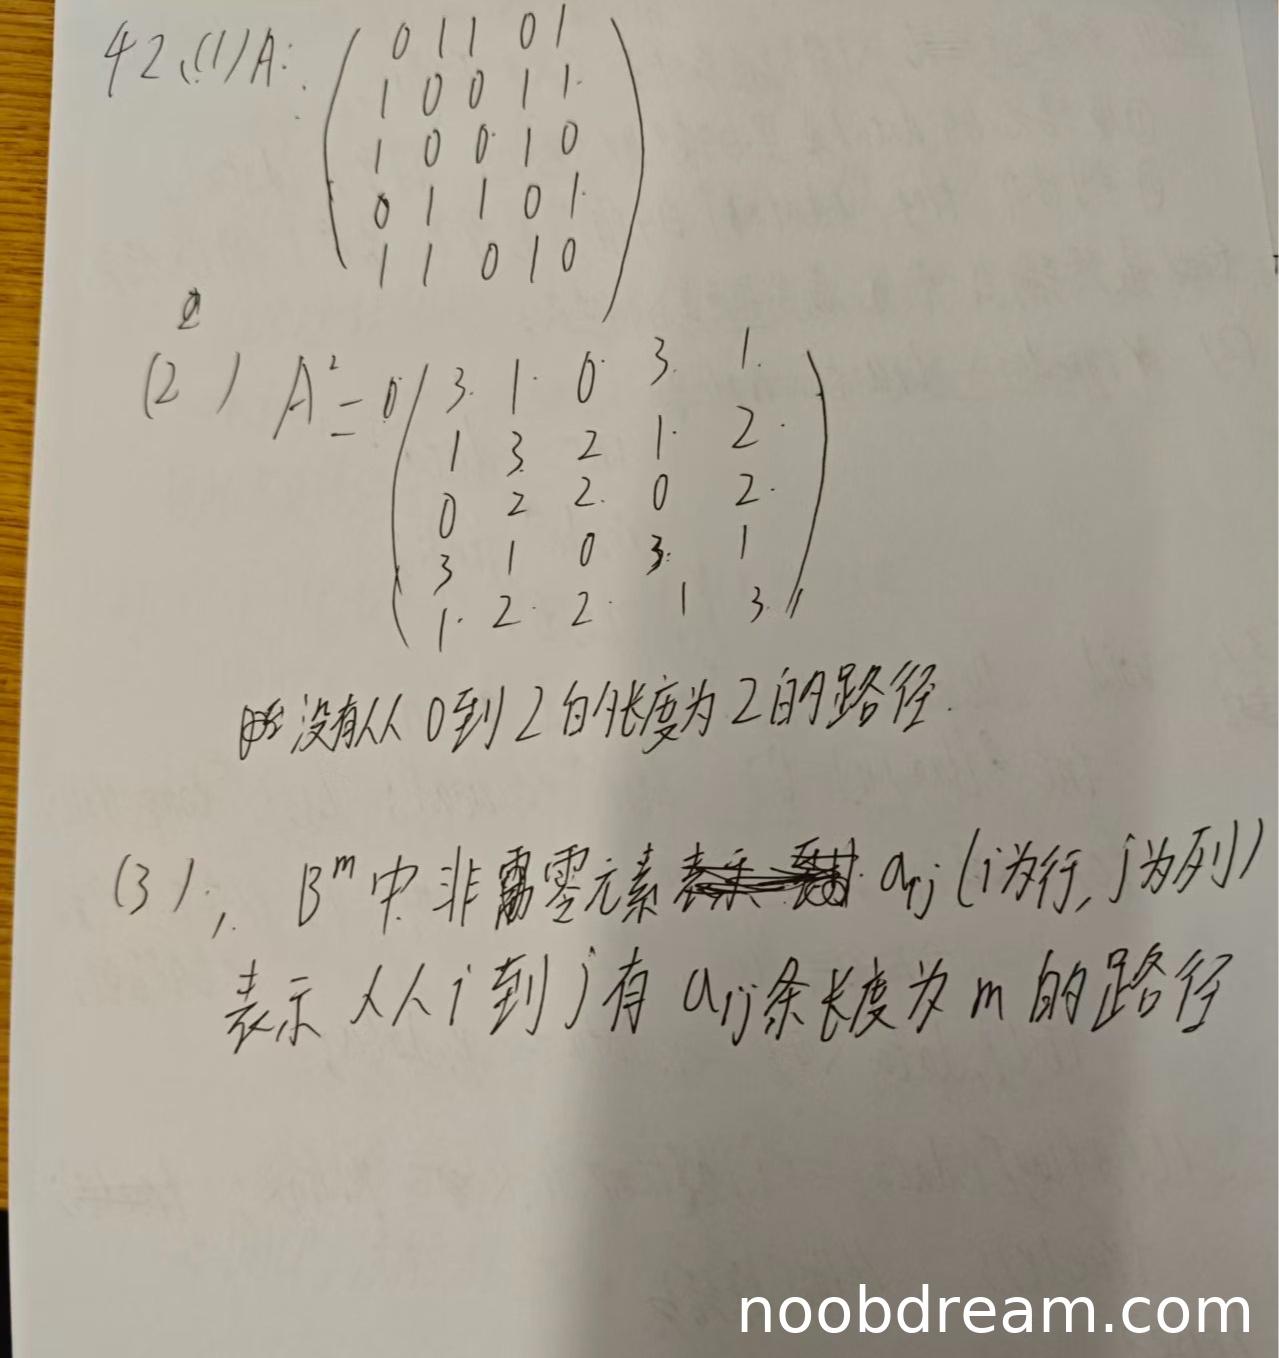 42、(1)A:
0 1 1 0 1
1 0 0 1 1
1 0 0 1 0
0 1 1 0 1
1 1 0 1 0
(2) A²=
3 1 0 3 1
1 3 2 1 2
0 2 2 0 2
3 1 0 3 1
1 2 2 1 3
没有从0到2的长度为2的路径.
(3). Bᵐ中非零元素 aij (i为行, j为列)
表示从i到j有aij条长度为m的路径
noobdream.com